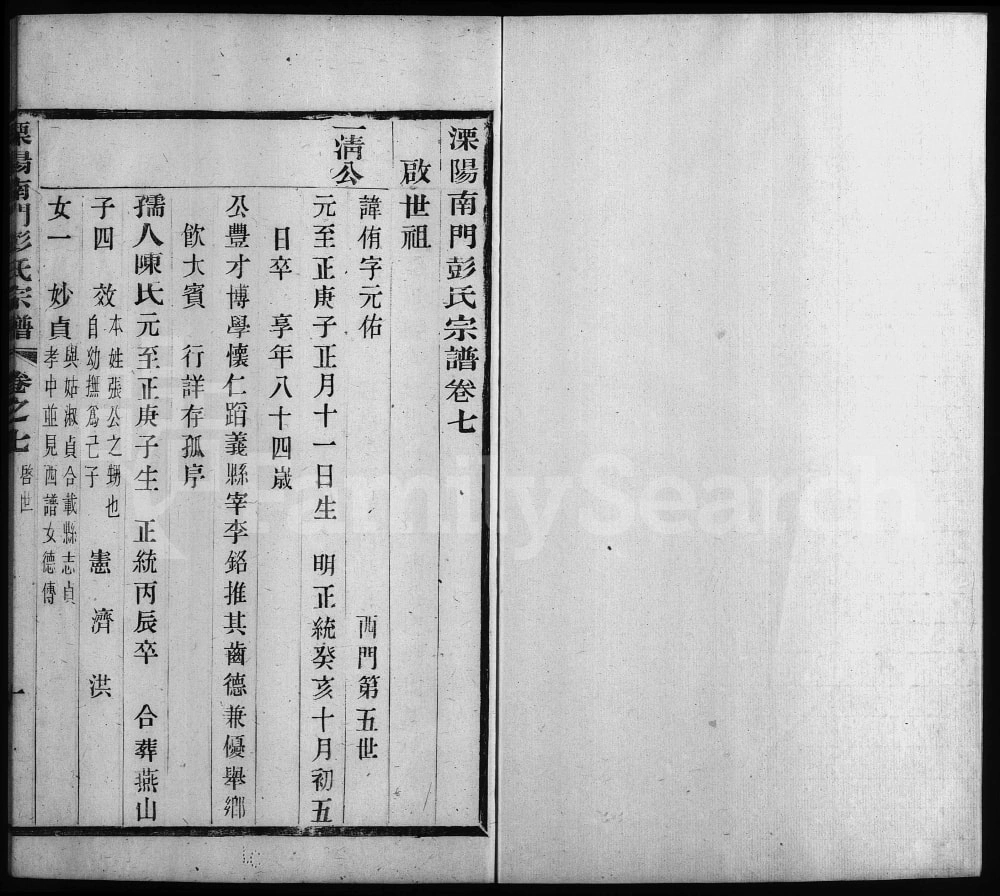 溧陽南門彭氏宗譜卷七
啟世祖
一清公
諱侑字元佑 西門第五世
元至正庚子正月十一日生 明正統癸亥十月初五
日卒 享年八十四歲
公豐才博學懷仁蹈義縣宰李銘推其齒德兼優舉鄉
飲大賓 行詳存孤序
孺人陳氏元至正庚子生 正統丙辰卒 合葬燕山
子四 效 本姓張公之甥也
自幼撫為己子 憲 濟 洪
女一 妙貞 與姑淑貞合載縣志貞
孝中並見西譜女德傳
溧陽南門彭氏宗譜 卷之七 啓世 一
FamilySearch